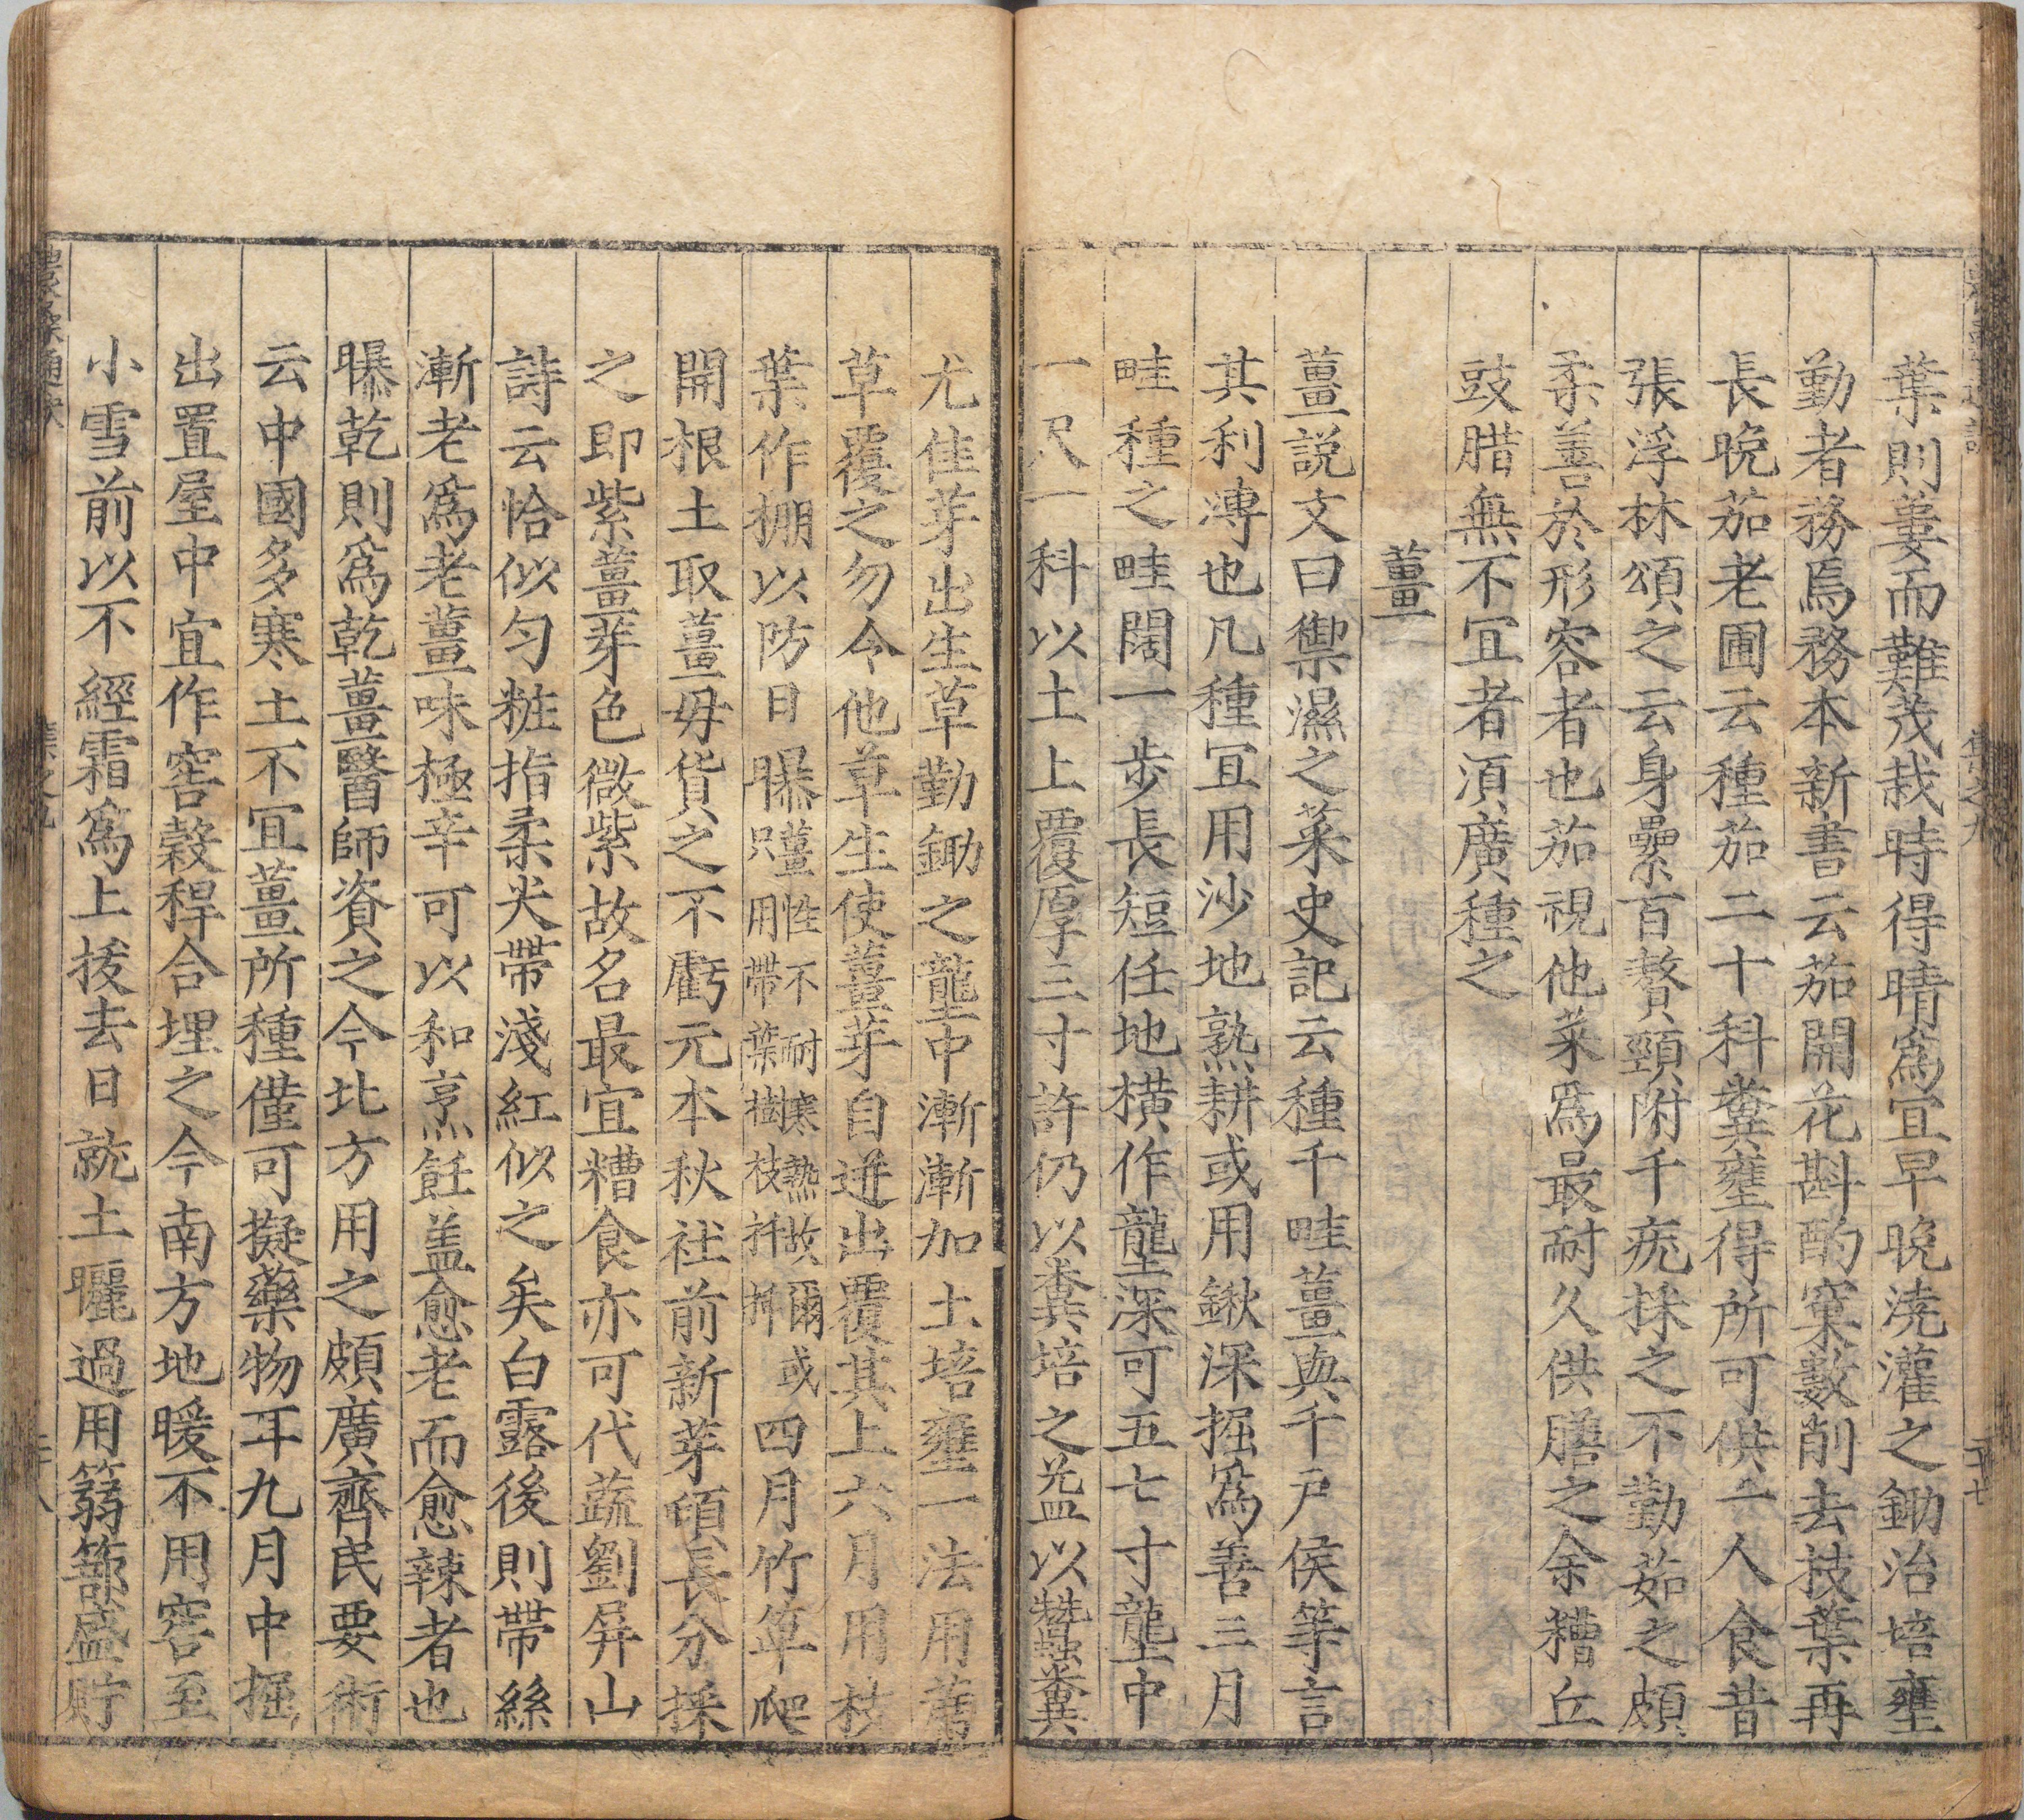 葉則萎而難茂栽時得晴爲宜早晚澆灌之鋤治培壅
勤者務焉務本新書云茄開花斟酌窠數削去技葉再
長晚茄老圃云種茄二十科糞壅得所可供一人食昔
張浮林頌之云身纍百贅頸附千疣抹之不勤茹之頗
柔善於形容者也茄視他菜爲最耐久供膳之余糟丘
豉腊無不宜者湏廣種之
薑
薑説文曰禦濕之菜史記云種千畦薑與千戸侯等言
其利溥也凡種宜用沙地熟耕或用鍬深掘爲善三月
畦種之畦闊一步長短任地横作壠深可五七寸壠中
一尺一科以土上覆厚三寸許仍以糞培之盖以蠶糞
尤佳芽出生草勤鋤之壠中漸漸加土培壅一法用蘆
草覆之勿令他草生使薑芽自迸出覆其上六月用枝
葉作棚以防日曝薑性不耐寒熱故爾或只用帶葉樹枝扦挿四月竹箄爬
開根土取薑毋貨之不虧元本秋社前新芽頓長分採
之即紫薑芽色微紫故名最宜糟食亦可代蔬劉屏山
詩云恰似匀粧指柔尖帶淺紅似之矣白露後則帶絲
漸老爲老薑味極辛可以和烹飪盖愈老而愈辣者也
曝乾則爲乾薑醫師資之今北方用之頗廣齊民要術
云中國多寒土不宜薑所種僅可擬藥物耳九月中掘
出置屋中宜作窖穀稈合埋之今南方地暖不用窖至
小雪前以不經霜爲上拔去日就土曬過用篛篰盛貯